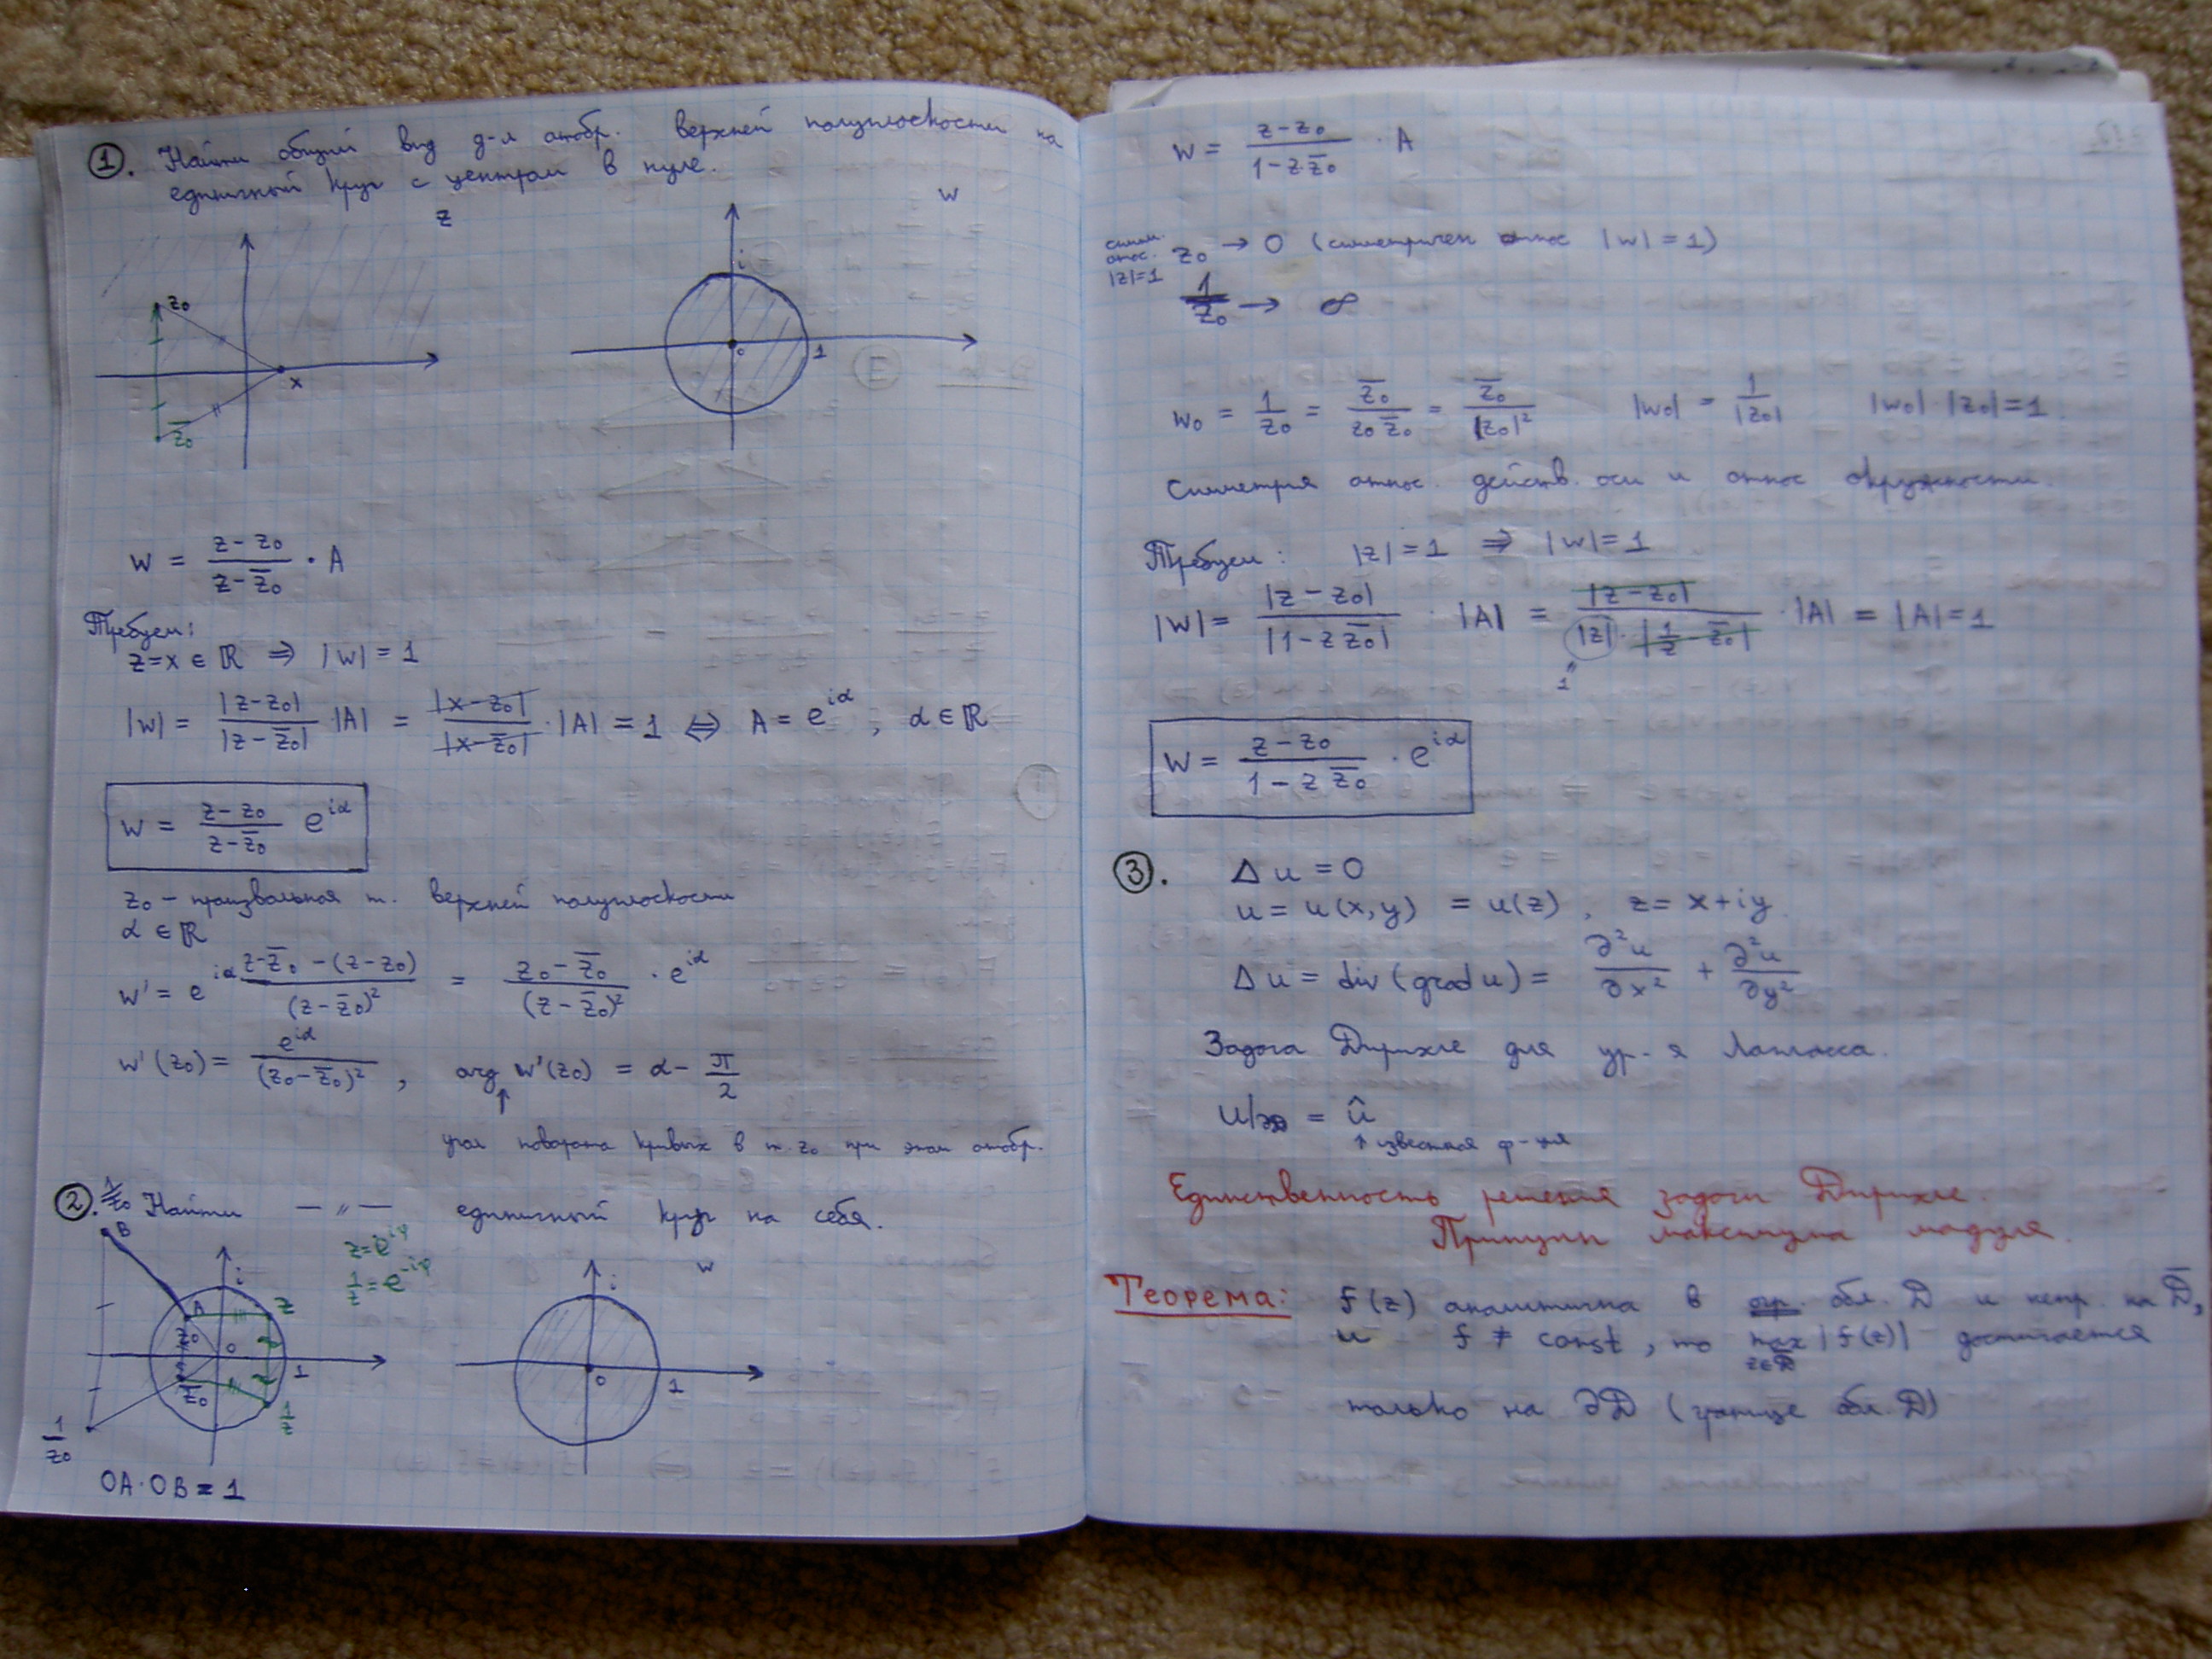 1. Найти общий вид д-л отобр. верхней полуплоскости на
единичный круг с центром в нуле.
z
w
z₀
z̄₀
x
i
0
1
w = (z-z₀)/(z-z̄₀) · A
Требуем:
z=x ∈ ℝ ⇒ |w| = 1
|w| = |z-z₀|/|z-z̄₀| |A| = |x-z₀|/|x-z̄₀| · |A| = 1 ⇔ A = e^{iα}, α ∈ ℝ
w = (z-z₀)/(z-z̄₀) e^{iα}
z₀ - произвольная т. верхней полуплоскости
α ∈ ℝ
w' = e^{iα} (z-z̄₀-(z-z₀))/(z-z̄₀)² = (z₀-z̄₀)/(z-z̄₀)² · e^{iα}
w'(z₀) = e^{iα}/(z₀-z̄₀)², arg w'(z₀) = α - π/2
↑
угол поворота кривых в т. z₀ при этом отобр.
2. Найти — 〃 — единичный круг на себя.
1/z̄₀
B
z=e^{iφ}
1/z=e^{-iφ}
w
i
A
z
z₀
0
1
z̄₀
1/z
1/z₀
i
0
1
OA·OB = 1
w = (z-z₀)/(1-z·z̄₀) · A
симм. относ. |z|=1
z₀ → 0 (симметричен относ |w| = 1)
1/z̄₀ → ∞
w₀ = 1/z₀ = z̄₀/(z₀z̄₀) = z̄₀/|z₀|² |w₀| = 1/|z₀| |w₀|·|z₀|=1
Симметрия относ. действ. оси и относ окружности.
Требуем: |z| = 1 ⇒ |w| = 1
|w| = |z-z₀|/|1-z z̄₀| · |A| = |z-z₀|/(|z|·|1/z-z̄₀|) · |A| = |A| = 1
1
w = (z-z₀)/(1-z z̄₀) · e^{iα}
3. Δu = 0
u = u(x,y) = u(z), z = x+iy
Δu = div(grad u) = ∂²u/∂x² + ∂²u/∂y²
Задача Дирихле для ур-я Лапласа.
u|∂D = û
↑ известная ф-ия
Единственность решения задачи Дирихле.
Принцип максимума модуля.
Теорема: f(z) аналитична в огр. обл. D и непр. на D̄,
и f ≠ const, то max |f(z)| достигается
z∈D̄
только на ∂D (границе обл. D)